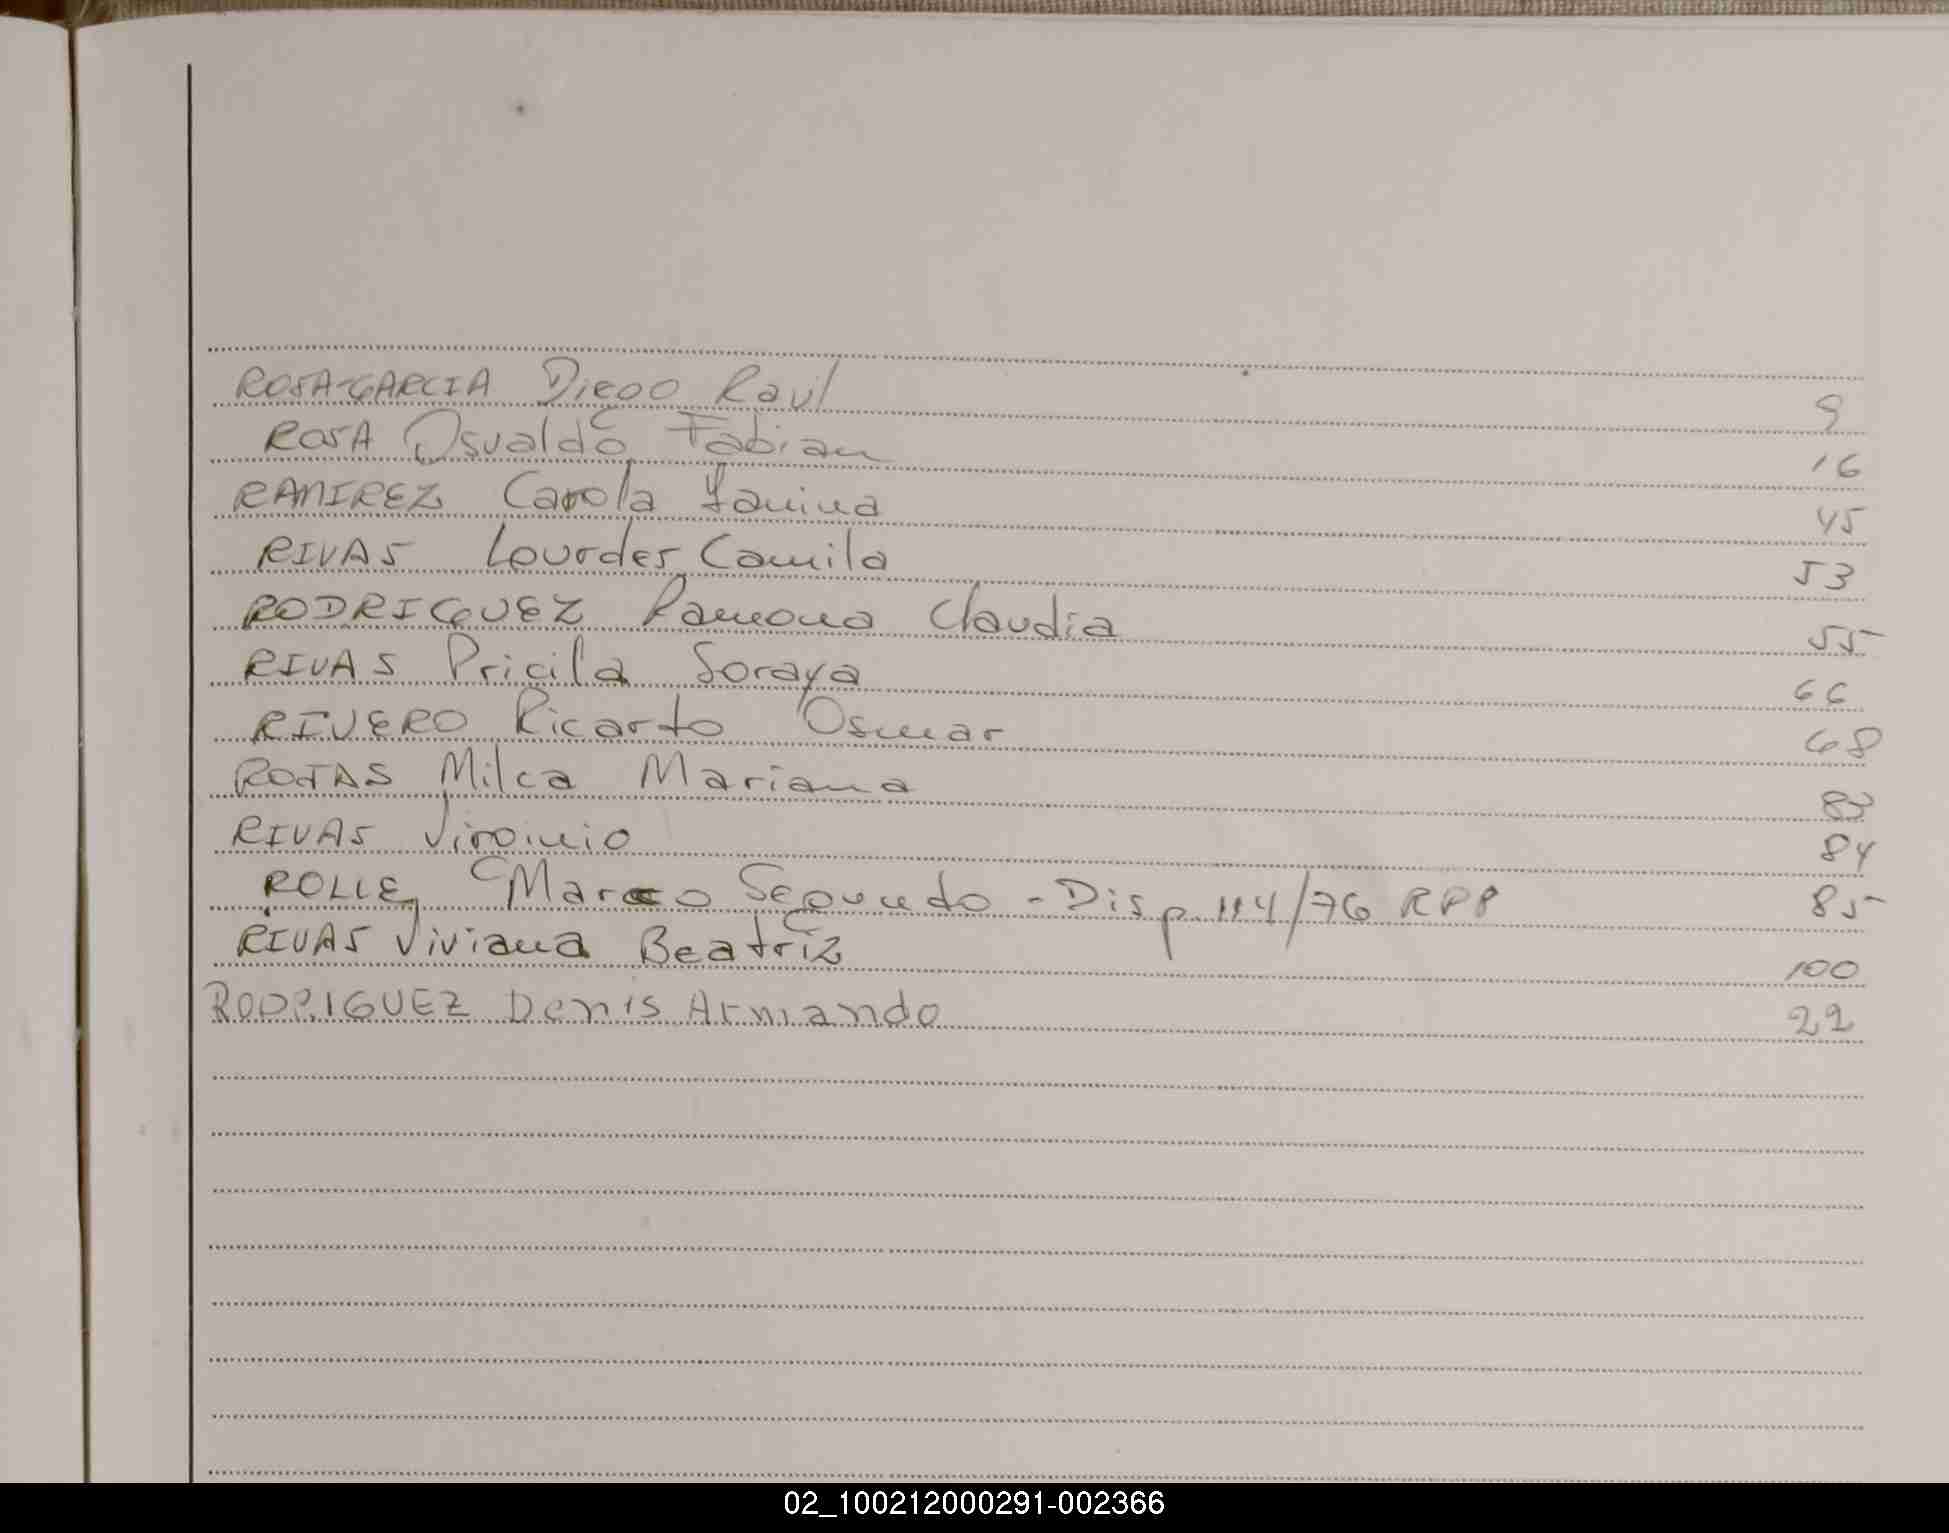 ROSA-GARCIA Diego Raul 9
ROSA Osvaldo Fabian 16
RAMIREZ Carola Yanina 45
RIVAS Lourdes Camila 53
RODRIGUEZ Ramona Claudia 55
RIVAS Pricila Soraya 66
RIVERO Ricardo Osmar 68
ROJAS Milca Mariana 83
RIVAS Virginio 84
ROLLE, Marco Segundo - Disp. 114/76 RPP 85
RIVAS Viviana Beatriz 100
RODRIGUEZ Denis Armando 22
02_100212000291-002366